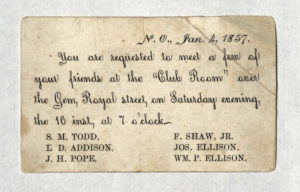 N. O., Jan. 4, 1857.
You are requested to meet a few of
your friends at the "Club Room" over
the Gem, Royal street, on Saturday evening,
the 10 inst, at 7 o'clock.
S. M. TODD, F. SHAW, JR.
L D. ADDISON, JOS. ELLISON.
J. H. POPE, WM. P. ELLISON.